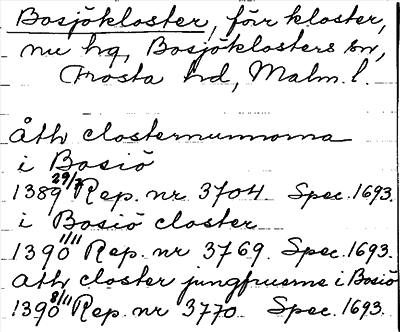 Bosjökloster, förr kloster,
nu hg, Bosjöklosters sn,
Frosta hd, Malm. l.
Åth closternunnorna
i Bosiö
1389 29/7 Rep. nr 3704. Spec. 1693.
i Bosiö closter
1390 11/11 Rep. nr 3769. Spec. 1693.
ath closter jungfruerne i Bosiö
1390 8/11 Rep. nr 3770. Spec. 1693.